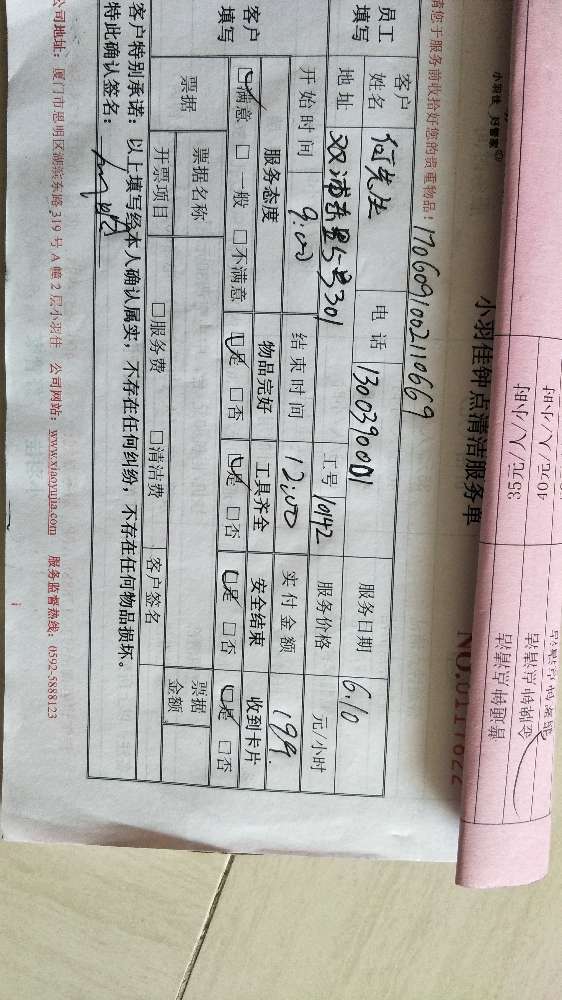 小羽佳 好管家
小羽佳钟点清洁服务单
NO.0117622
请您于服务前收拾好您的贵重物品！
170609100210669
员工填写
客户姓名 何先生 电话 1300390001 服务日期 6.10
地址 双浦东里5号301 工号 10142 服务价格 元/小时
客户填写
开始时间 9:00 结束时间 12:00 实付金额 199.
服务态度 物品完好 工具齐全 安全结束 收到卡片
□满意 □一般 □不满意 □是 □否 □是 □否 □是 □否 □是 □否
票据 票据名称 票据金额
开票项目 □服务费 □清洁费 客户签名
客户特别承诺：以上填写经本人确认属实，不存在任何纠纷，不存在任何物品损坏。
特此确认签名：
公司地址：厦门市思明区湖滨东路319号A幢2层小羽佳 公司网站：www.xiaoyujia.com 服务监督热线：0592-5888123
40元/人/小时
35元/人/小时